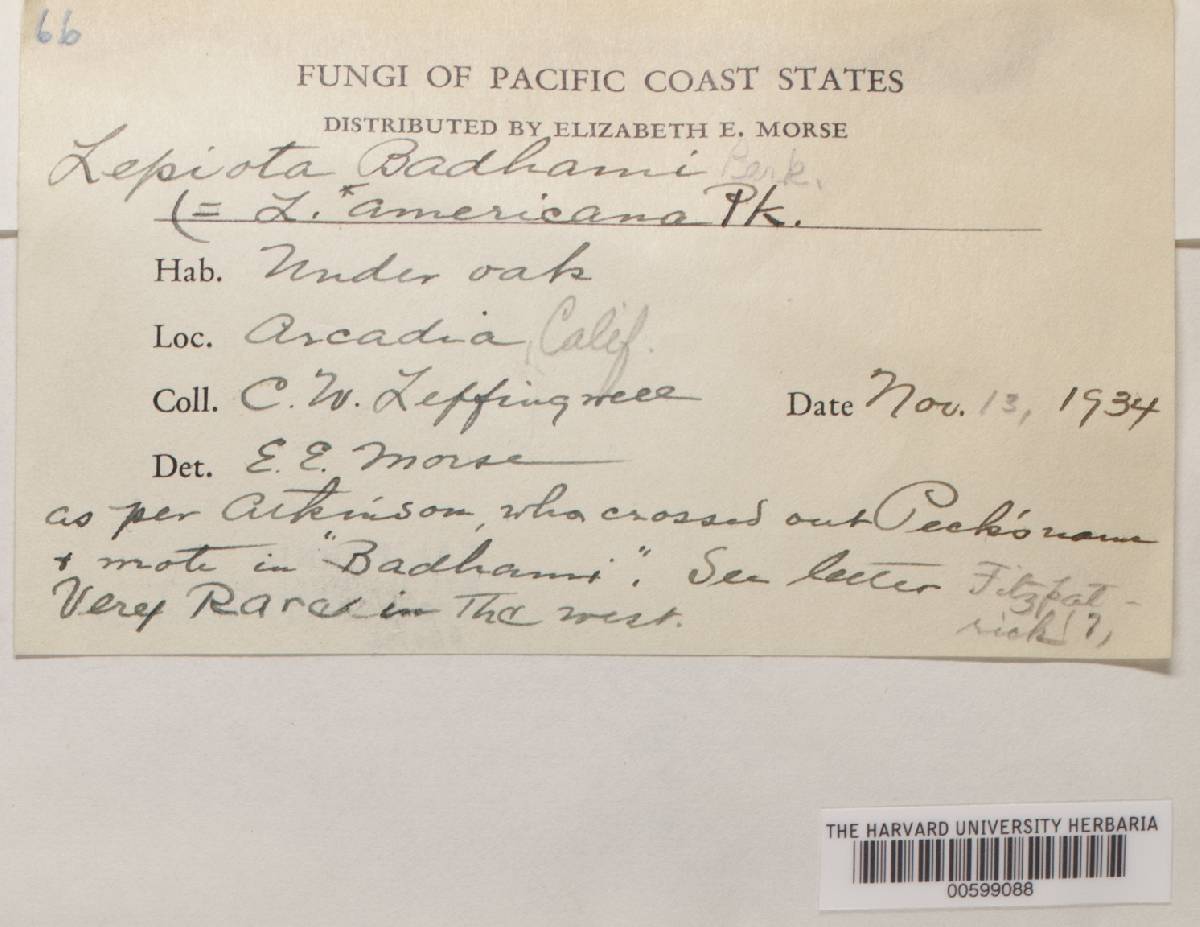 66
FUNGI OF PACIFIC COAST STATES
DISTRIBUTED BY ELIZABETH E. MORSE
Lepiota Badhami Berk.
(= L. *americana Pk.
Hab. Under oak
Loc. Arcadia, Calif.
Coll. C. W. Leffingwell Date Nov. 13, 1934
Det. E. E. Morse
as per Atkinson, who crossed out Peck's name
+ wrote in "Badhami". See letter Fitzpat-
rick
Very Rare in The west.
THE HARVARD UNIVERSITY HERBARIA
00599088